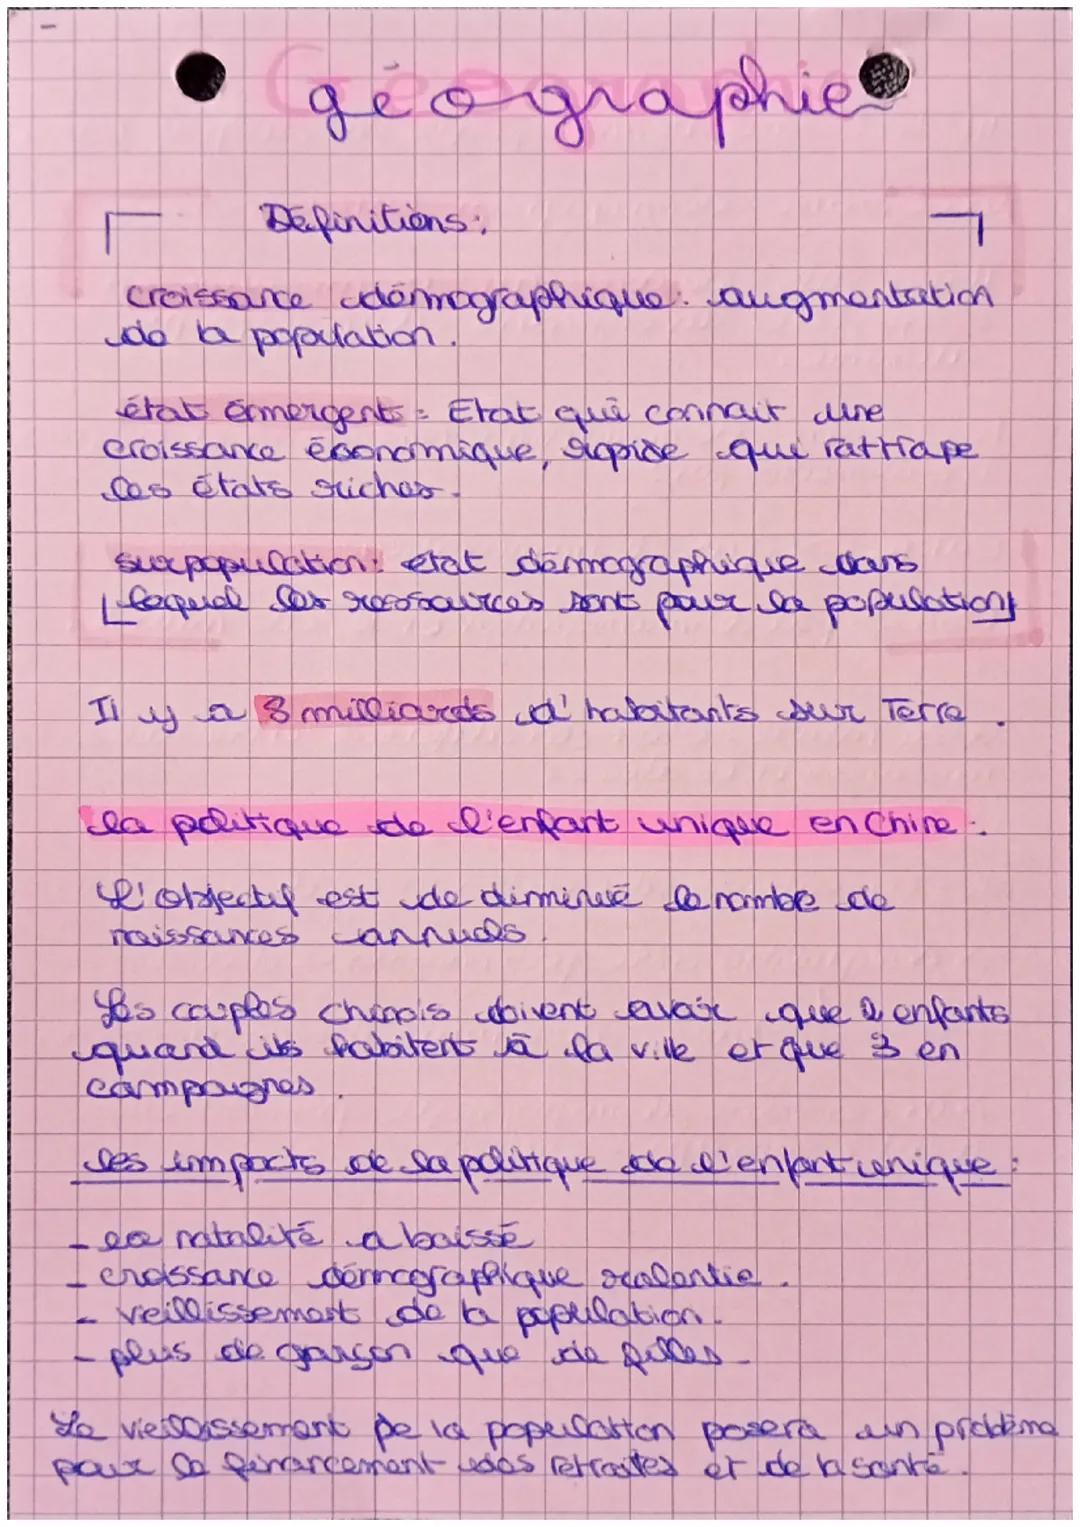 géographie
Définitions:
croissance démographique: augmentation
de la population.
état émergent: Etat qui connait une
croissance économique, rapide qui rattrape
les états riches.
surpopulation: état démographique dans
lequel les ressources sont pour la population
Il y a 8 milliards d'habitants sur Terre.
la politique de l'enfant unique en Chine:
L'objectif est de diminué le nombre de
naissances annuels.
Les couples chinois doivent avoir que 2 enfants
quand ils habitent à la ville et que 3 en
campagnes.
les impacts de la politique de l'enfant unique:
- la natalité a baissé
- croissance démographique ralentie.
- vieillissement de la population.
- plus de garçon que de filles.
Le vieillissement de la population posera un problème
pour le financement des retraites et de la santé.